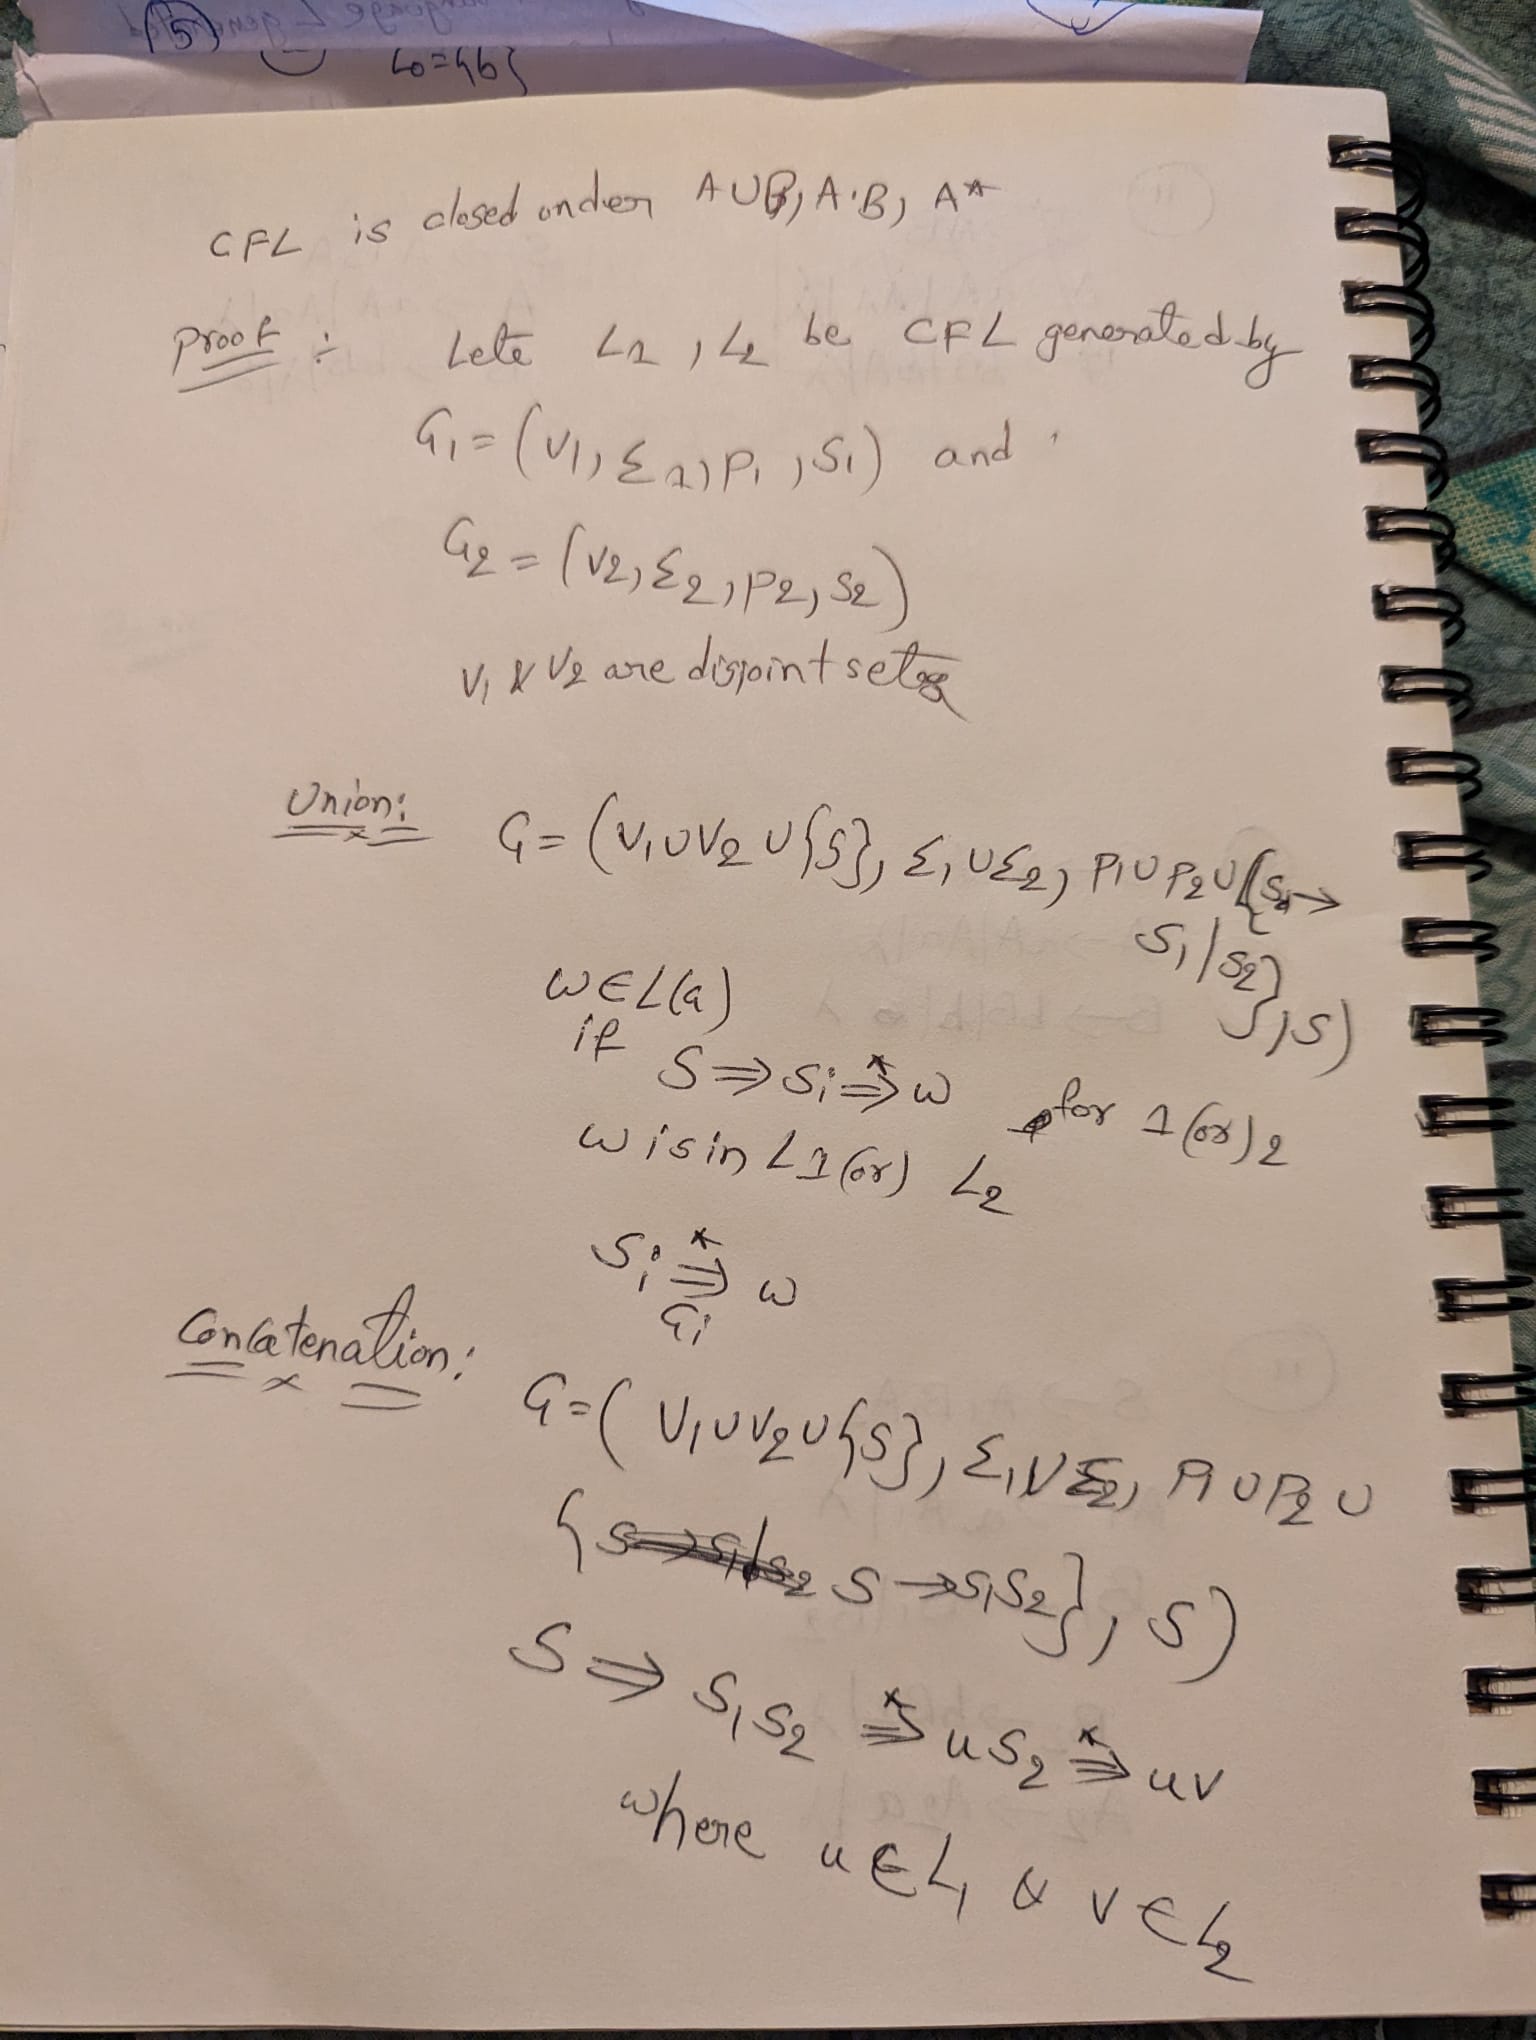 (5)
L0={b}
CFL is closed under A∪B, A·B, A*
Proof : Lete L1, L2 be CFL generated by
G1=(V1, Σ1, P1, S1) and
G2=(V2, Σ2, P2, S2)
V1 & V2 are disjoint sets
Union: G=(V1∪V2∪{S}, Σ1∪Σ2, P1∪P2∪{S→
S1/S2}, S)
w∈L(G)
if
S⇒Si⇒* w for 1 (or) 2
w is in L1 (or) L2
Si ⇒* w
Gi
Concatenation:
G=(V1∪V2∪{S}, Σ1∪Σ2, P1∪P2∪
{S→S1/S2 S→S1S2}, S)
S⇒S1S2 ⇒* uS2 ⇒* uv
where u∈L1 & v∈L2